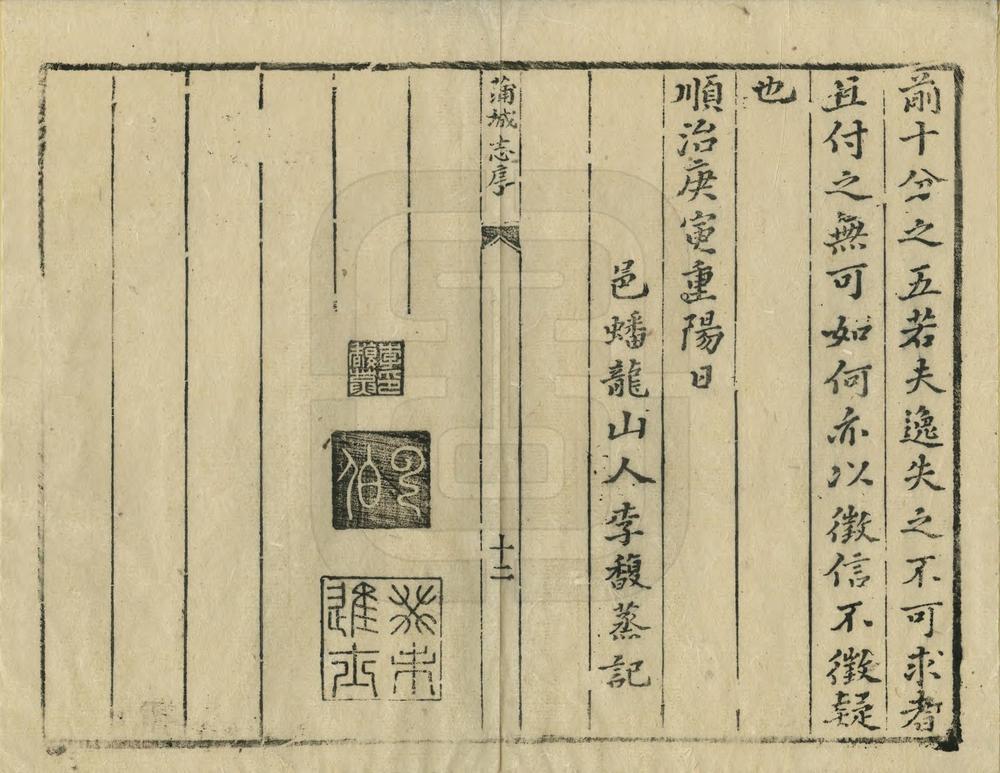 前十分之五若夫逸失之不可求者
並付之無可如何亦以徵信不徵疑
也
順治庚寅重陽日
邑蟠龍山人李馥蒸記
蒲城志序
十二
李馥蒸印
伯
癸未進士